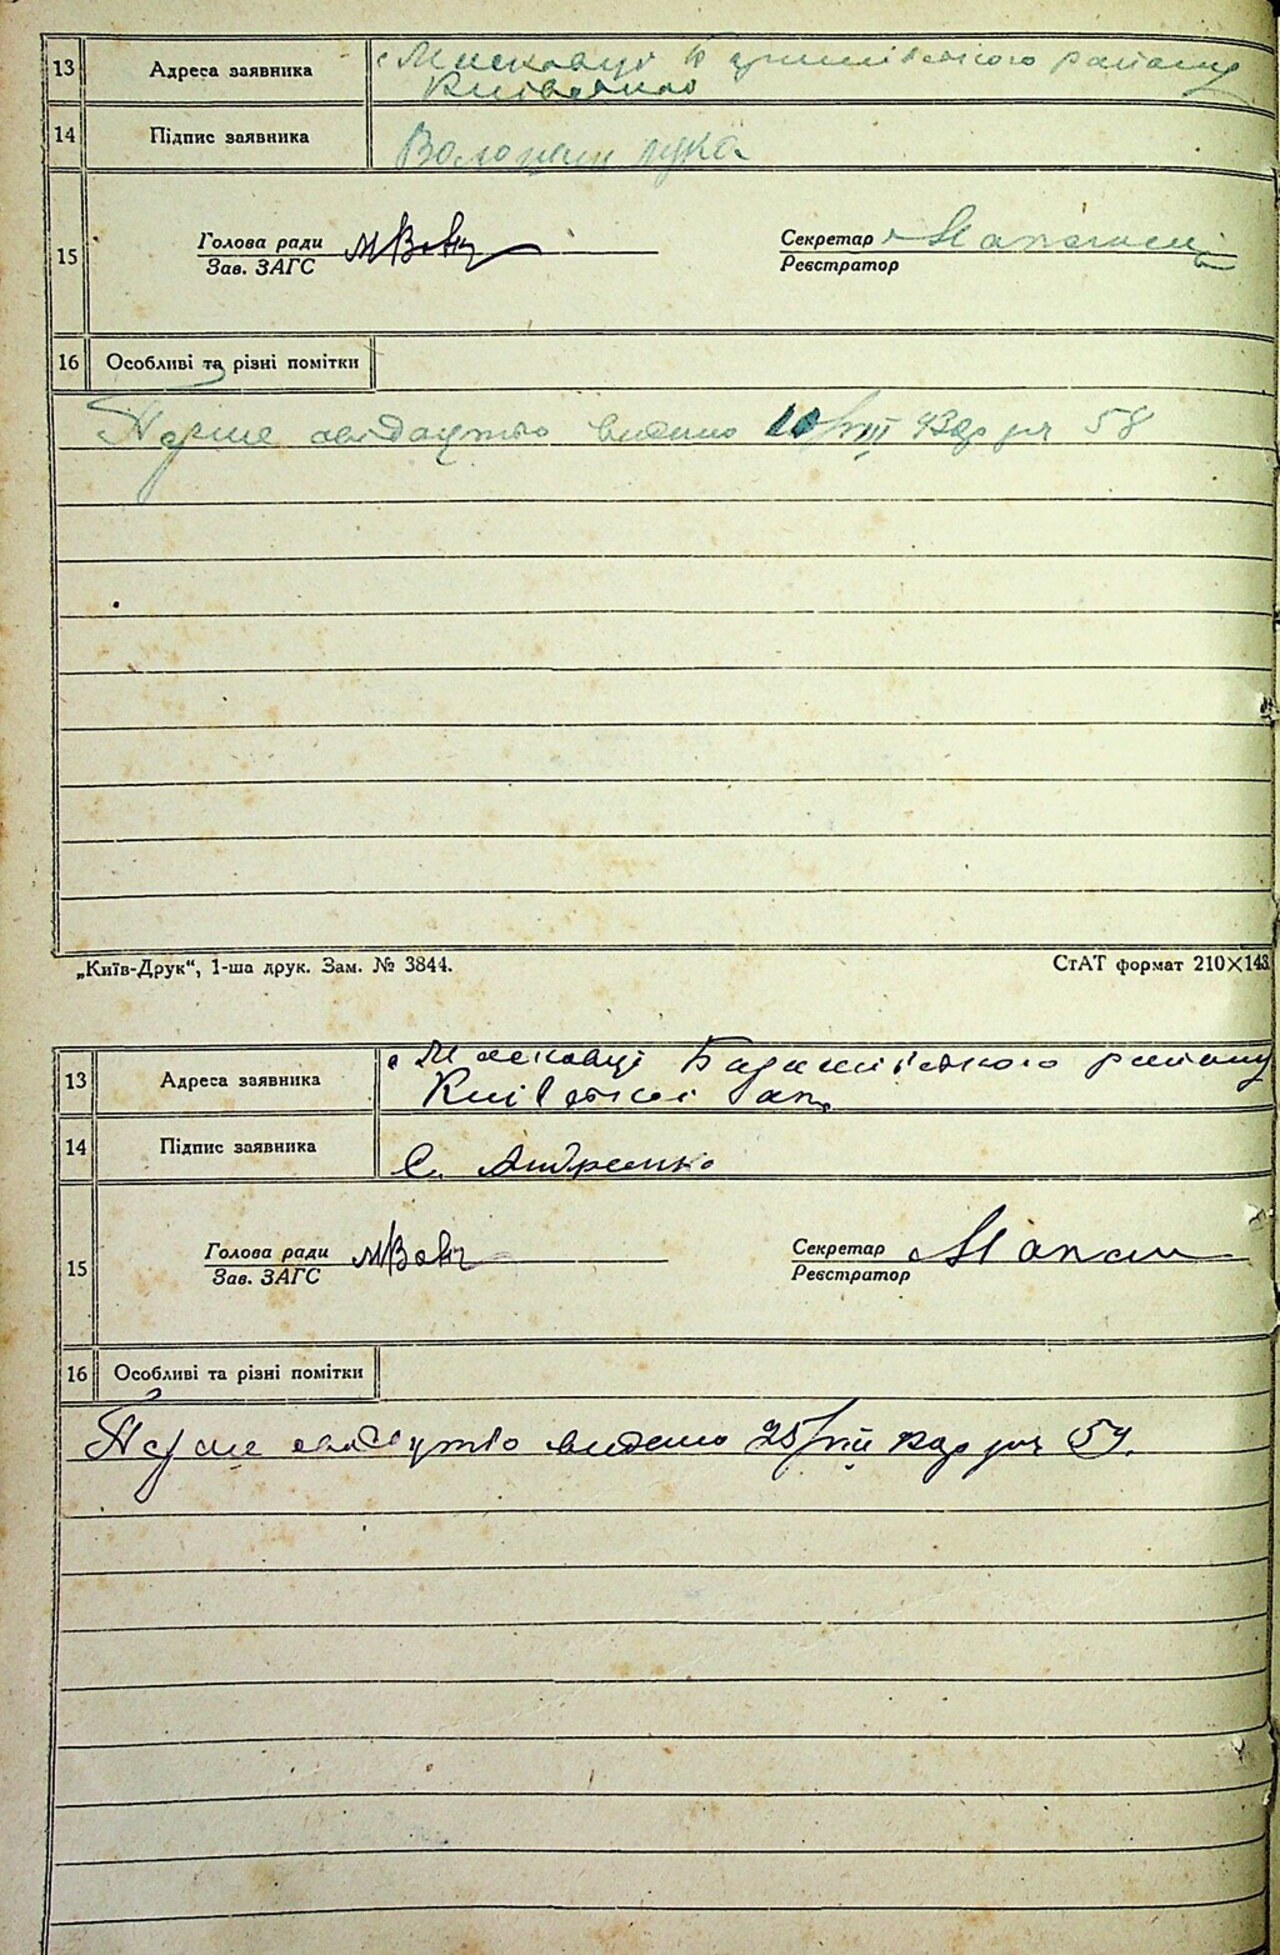 13 Адреса заявника с Масковці Баришівського району
Київської
14 Підпис заявника Волошин Лука
15 Голова ради Секретар
Зав. ЗАГС Реєстратор
16 Особливі та різні помітки
Перше свідоцтво видано 10/VIII 43 р за 58
„Київ-Друк“, 1-ша друк. Зам. № 3844. СтАТ формат 210×143
13 Адреса заявника с Масковці Баришівського району
Київської
14 Підпис заявника С. Андреенко
15 Голова ради Секретар
Зав. ЗАГС Реєстратор
16 Особливі та різні помітки
Перше свідоцтво видано 25/VIII